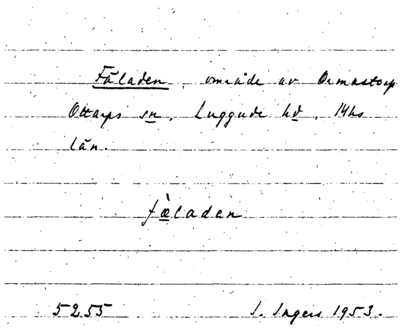 Fäladen, område av Ormastorp
Ottarps sn, Luggude hd, Mhs
län.
fæladen
5255
I. Ingers 1953.